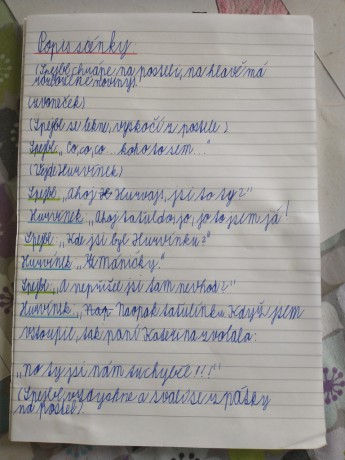 Popis scénky
(Spejbl chrápe na posteli, na hlavě má
rozevřené noviny).
(zvoneček)
(Spejbl se lekne, vyskočí z postele)
Spejbl: „Co, co, co... koho to sem..."
(Vejde Hurvínek)
Spejbl: „ahoj Hurvajs, jsi to ty?"
Hurvínek: „Ahoj taťuldo, jo, jo to jsem já!
Spejbl: „Kde jsi byl Hurvínku?"
Hurvínek: „U máničky."
Spejbl: „a nepřišel jsi tam nevhod?"
Hurvínek: „Naopak taťulínku. Když jsem
vstoupil, tak paní Kateřina zvolala:
„no ty jsi nám tu chyběl!!!"
(Spejbl vzdychne a svalí se zpátky
na postel).